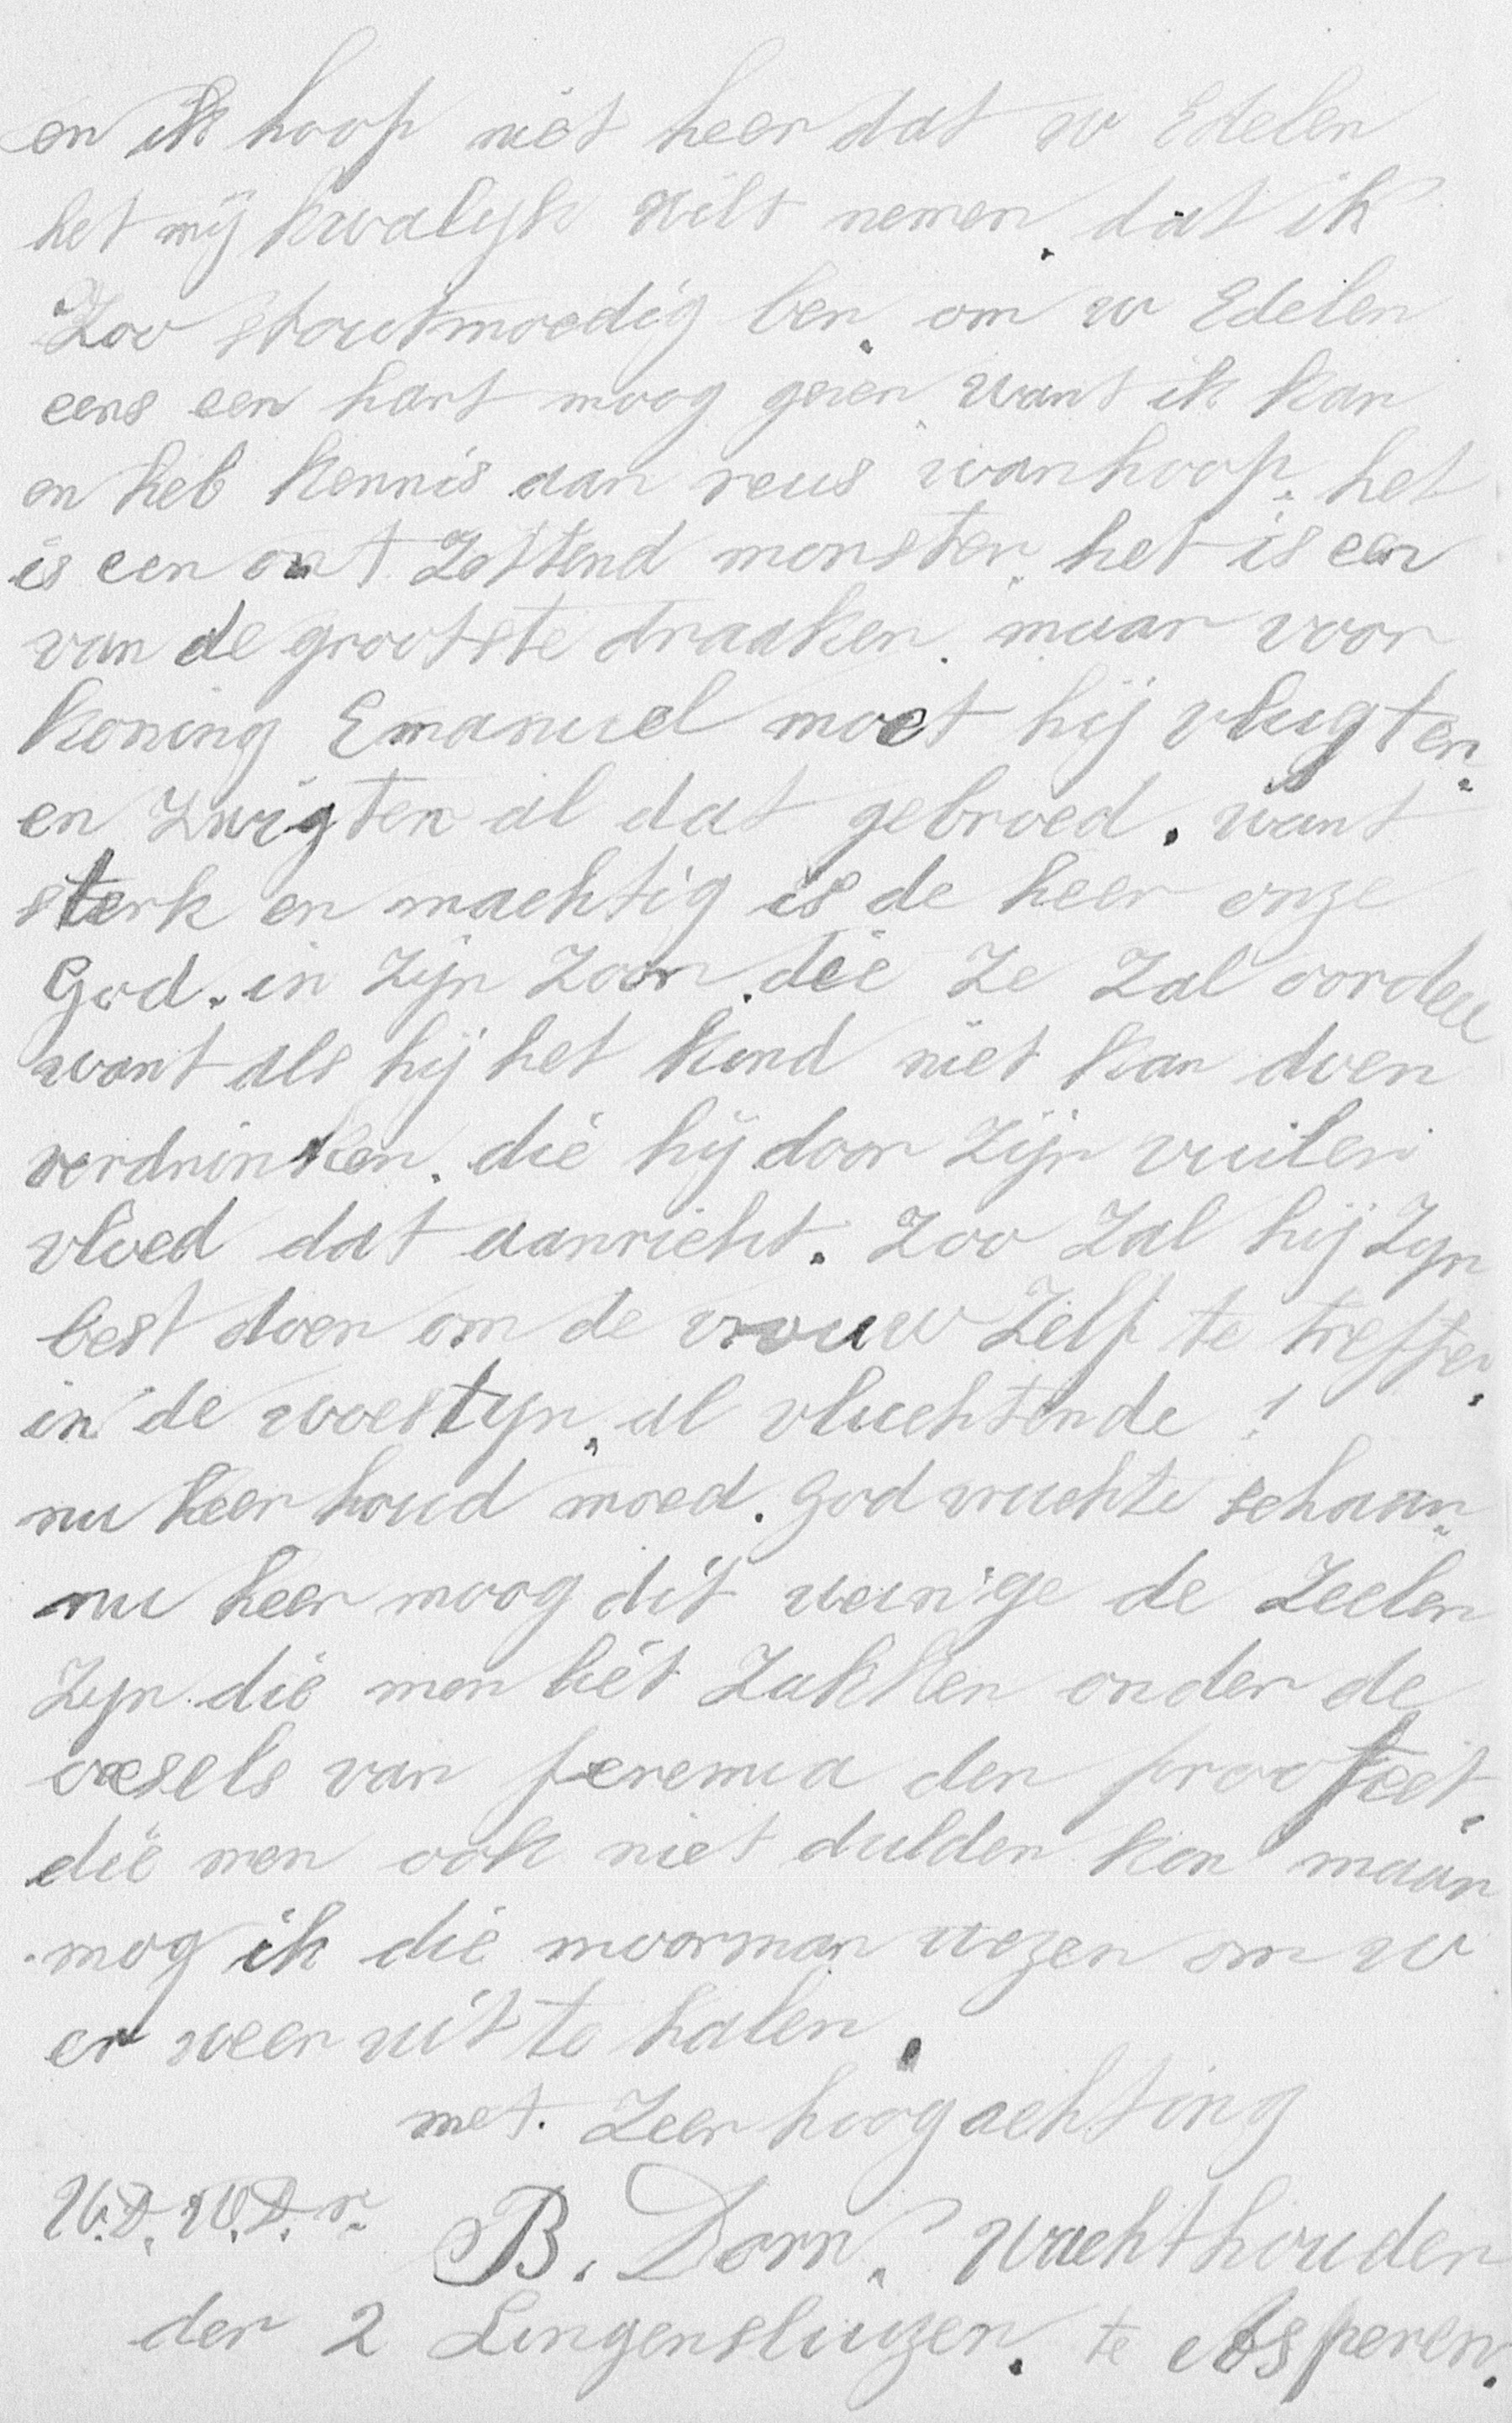 en ik hoop niet heer dat u Edelen
het mij kwalijk wilt nemen. dat ik
Zoo stoutmoedig ben. om u Edelen
eens een hart moog geven want ik kan
en heb kennis aan reus wanhoop. het
is een ont Zettend monster. het is een
van de grootste draaken. maar voor
koning Emanuel moet hij vlugten.
en Zwigten al dat gebroed. want
sterk en machtig is de heer onze
God. in Zijn Zoon. die Ze Zal oordeel
want als hij het kind niet kan doen
verdrinken. die hij door Zijn vuilen
vloed dat aanricht. Zoo Zal hij Zyn
best doen om de vrouw Zelf te treffen.
in de woestyn. al vluchtende !
nu heer houd moed. God vruchte schaar.
nu heer moog dit weinige de Zeelen
Zyn die men liet Zakken onder de
oxsels van Jeremia den profeet.
die men ook niet dulden kon maar
mog ik die moorman wezen om u
er weer uit te halen.
met. Zeer hoogachting
U.D.W.D.r.
B. Dorn. Wachthouder
der 2 Lingensluizen. te Asperen.